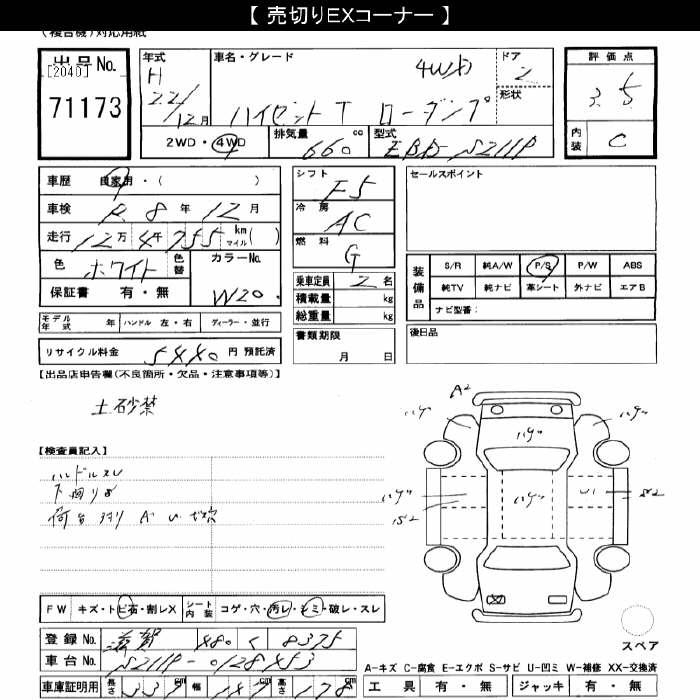 【 売切りEXコーナー 】
(複合機)対応用紙
出品No.
[2040]
71173
年式
H
22/12月
車名・グレード
4WD
ハイゼットT ローダンプ
ドア
2
形状
評価点
3.5
内装
C
2WD・4WD
排気量 cc
660
型式
EBD-S211P
車歴 自家用・( )
車検 R 8年12月
走行 12万4千255 km マイル( )
色 ホワイト 色替
カラーNo.
W20
保証書 有・無
モデル年式 年 ハンドル 左・右 ディーラー・並行
リサイクル料金 5440円 預託済
シフト
F5
冷房
AC
燃料
G
乗車定員 2名
積載量 kg
総重量 kg
書類期限
月 日
セールスポイント
装備品
S/R 純A/W P/S P/W ABS
純TV 純ナビ 革シート 外ナビ エアB
ナビ型番:
後日品
【出品店申告欄(不良箇所・欠品・注意事項等)】
土砂禁
【検査員記入】
ハンドルスレ
下廻りS
荷台周り A U
A2
ハゲ ハゲ
ハゲ
ハゲ ハゲ U1 S2
S2
スペア
FW キズ・トビ石・割レX シート内装 コゲ・穴・汚レ・シミ・破レ・スレ
登録No. 滋賀 480 く 8375
車台No. S211P-0128453
車庫証明用 長さ 339cm 幅 147cm 高さ 178cm
A-キズ C-腐食 E-エクボ S-サビ U-凹ミ W-補修 XX-交換済
工具 有・無 ジャッキ 有・無